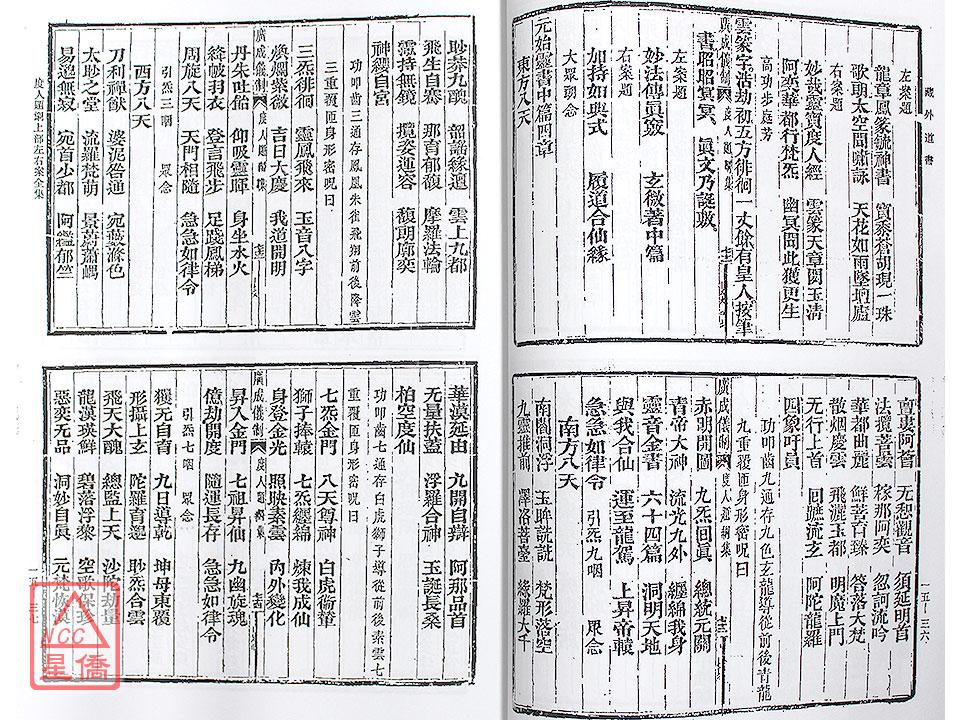 藏外道書
左案題
龍章鳳篆毓神書 寶黍蒼胡現一珠
歌朗太空聞嘯詠 天花如雨墜
右案題
妙哉靈寶度人經 雲篆天章閟玉清
阿奕華都行梵炁 幽冥聞此獲更生
高功步庭芳
雲篆字浩劫初五方徘徊一丈餘有皇人按筆
廣成儀制 度人題綱集
書昭昭冥冥 眞文乃誕敷
左案題
妙法傳眞竅 玄微著中篇
右案題
加持如典式 履道合仙緣
大眾朗念
元始靈書中篇四章
東方八天
亶婁阿薈 无惒觀音 須延明首
法攬菩曇 稼那阿奕 忽訶流吟
華都曲麗 鮮菩育臻 答落大梵
散烟慶雲 飛灑玉都 明魔上門
无行上首 回蹠流玄 阿陀龍羅
四象吁員
功叩齒九通存九色玄龍導從前後青龍
九重覆匝身形密呪曰
廣成儀制 度人題綱集
赤明開圖 九炁回眞 總統元關
青帝大神 流光九外 纏綿我身
靈音金書 六十四篇 洞明天地
與我合仙 運至龍駕 上昇帝轅
急急如律令 引炁九咽 眾念
南方八天
南閻洞浮 玉眸詵詵 梵形落空
九靈推前 澤洛菩臺 綠羅大千
一五—三六
眇莽九醜 韶謠緣邅 雲上九都
飛生自騫 那育郁馥 摩羅法輪
霐持無鏡 攬姿運容 馥朗廓奕
神纓自宮
功叩齒三通存鳳凰朱雀飛翔前後降雲
三重覆匝身形密呪曰
三炁徘徊 靈鳳飛來 玉音八字
廣成儀制 度人題綱集
煥爛紫微 吉日大慶 我道開明
丹朱吐飴 仰吸靈暉 身坐水火
絳帔羽衣 登言飛步 足踐鳳梯
周旋八天 天門相隨 急急如律令
引炁三咽 眾念
西方八天
刀利禪猷 婆泥咎通 宛藪滌色
太眇之堂 流羅梵萌 景蔚蕭嵎
易邈無寂 宛首少都 阿𨯫郁竺
度人題綱上部左右案全集
華漠延由 九開自辯 阿那品首
无量扶蓋 浮羅合神 玉誕長桑
柏空度仙
功叩齒七通存白虎獅子導從前後素雲七
重覆匝身形密呪曰
七炁金門 八天尊神 白虎衛
獅子捧轅 七炁纏綿 煉我成仙
身登金光 照映素雲 內外變化
廣成儀制 度人題綱集
昇入金門 七祖昇仙 九幽旋魂
億劫開度 隨運長存 急急如律令
引炁七咽 眾念
獲无自育 九日導乾 坤母東覆
形攝上玄 陀羅育邈 眇炁合雲
飛天大醜 總監上天 沙陀劫量
龍漢瑛鮮 碧落浮黎 空歌保珍
惡奕无品 洞妙自眞 元梵恢漠
NCC
星僑